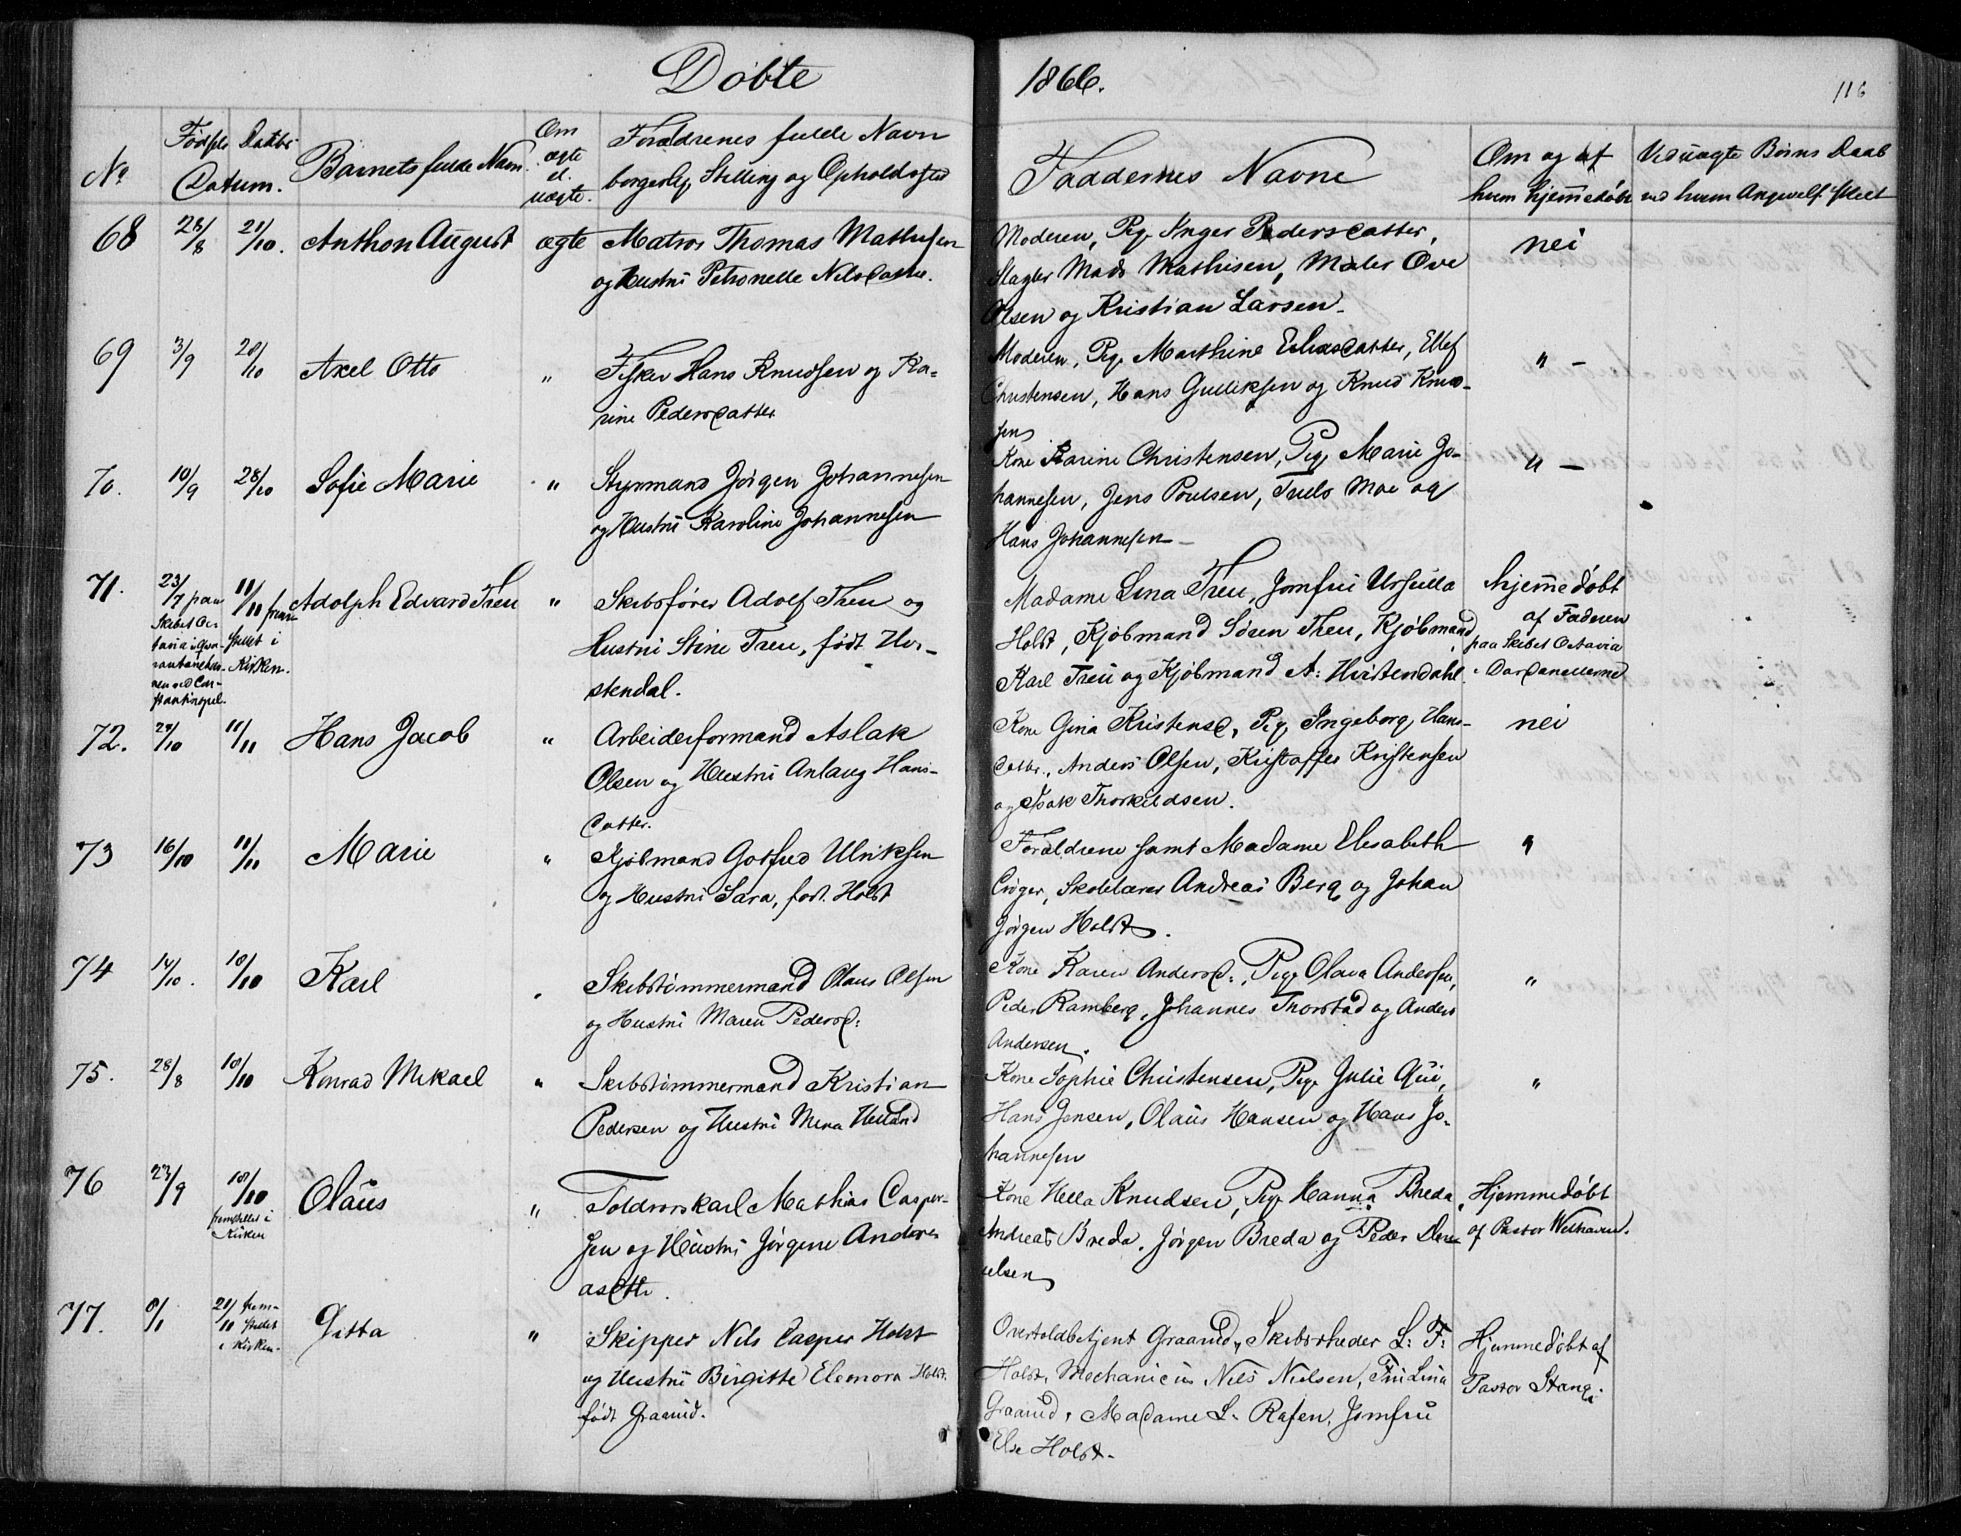 Döbte 1866.
116
No
Fødsels Daabs
Datum.
Barnets fulde Navn
Om ægte el. uægte.
Forældrenes fulde Navn
borgerlig Stilling og Opholdssted
Faddernes Navne
Om og af
hvem hjemmedøbt
Ved uægte Børns Daab
68 28/8 21/10. Anthon August ægte Matros Thomas Mathisen
og Hustrü Petronelle Nilsdatter.
Moderen, Pige Inger Pedersdatter,
Slagter Mads Mathisen, Maler Ove
Olsen og Kristian Larsen.
nei
69 3/9 28/10 Axel Otto " Fisker Hans Knudsen og Ka-
rine Pedersdatter
Moderen, Pige Marthine Eliasdatter, Ellef
Christensen, Hans Gulliksen og Knud Knud-
sen
" –
70. 10/9 28/10 Sofie Marie " Styrmand Jörgen Johannesen
og Hustrü Karoline Johannesen
Kone Karine Christensen, Pige Marie Jo-
hannesen, Jens Poulsen, Truls Moe og
Hans Johannesen –
" –
71. 23/7 paa
Skibet Oc-
tavia
11/11 frem-
stillet i
Kirken.
Adolph Edvard Treu " Skibsförer Adolf Treu og
Hustrü Stine Treu, født Hir-
stendal.
Madame Lina Treu, Jomfrü Ursülla
Holst, Kjöbmand Sören Treu, Kjöbmand
Karl Treü og Kjöbmand A: Hirstendahl.
hjemmedöbt
af Faderen
paa Skibet Octavia
i Dardanellerne
72. 29/10 11/11 Hans Jacob " Arbeidsformand Aslak
Olsen og Hustrü Anlaug Hans-
datter.
Kone Gina Kristensd, Pige Ingeborg Hans-
datter, Anders Olsen, Kristoffer Kristensen
og Isak Thorkildsen.
nei
73 16/10 11/11 Marie " Kjöbmand Gotfred Ulriksen
og Hustrü Sara, født. Holst
Forældrene samt Madame Elisabeth
Cröger, Skolelærer Andreas Berg og Johan
Jörgen Holst.
"
74 14/10. 18/10 Karl " Skibstömmermand Olaus Olsen
og Hustrü Maren Pedersd:
Kone Karen Andersd:, Pige Olava Andersen,
Peder Ramberg, Johannes Thorstad og Anders
Andersen.
"
75. 28/8 18/10 Konrad Mikael " Skibstömmermand Kristian
Pedersen og Hustrü Mina Heiland
Kone Sophie Christensen, Pige Julie Qüi,
Hans Jensen, Olaüs Hansen og Hans Jo-
hannesen
"
76 23/9 18/10
fremstillet i
Kirken
Olaüs " Toldrorskarl Mathias Casper-
sen og Hüstrü Jörgine Andere-
asdtr.
Kone Hella Knudsen, Pige Hanna Breda,
Andreas Breda, Jörgen Breda og Peder Dani-
elsen
Hjemmedöbt
af Pastor Welhaven.
77. 8/1 20/11 frem-
stillet
i Kirken.
Gitta " Skipper Nils Casper Holst
og Hustrü Birgitte Eleonora Holst,
født Graarud.
Overtoldbetjent Graarud, Skibsrheder L: F:
Holst, Mechanicus Nils Nielsen, Frü Lina
Graarud, Madame L. Rafen, Jomfrü
Else Holst.
Hjemmedöbt af
Pastor Stang.